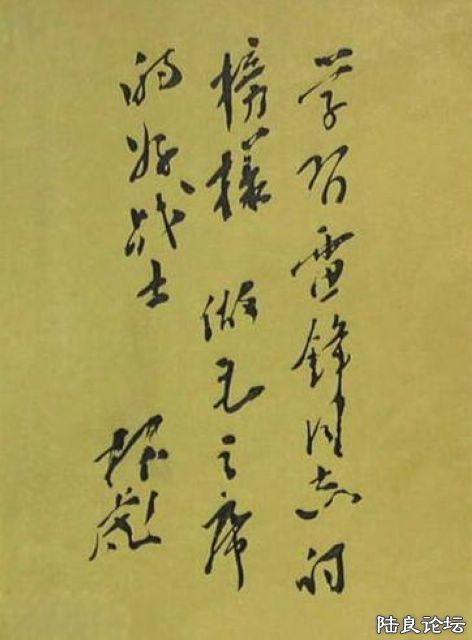 学习雷锋同志的
榜样 做毛主席
的好战士
林彪
陆良论坛